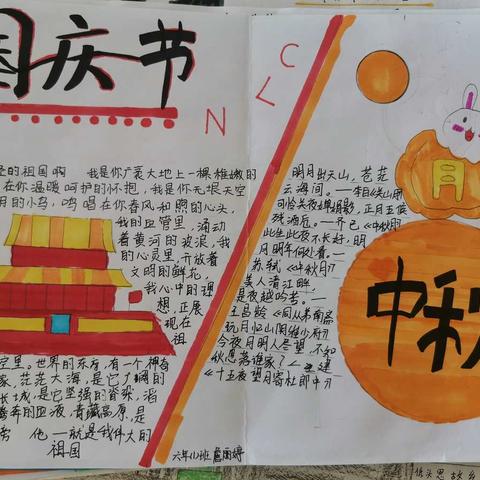 国庆节
N L C
的祖国啊 我是你广袤大地上一棵稚嫩的
在你温暖呵护的怀抱,我是你无垠天空
的小鸟,鸣唱在你春风和煦的心头,
我的血管里,涌动
着黄河的波浪,我
的心灵里,开放着
文明的鲜花,
我心中的理
想,正展
现在
祖
空里。世界的东方,有一个神奇
家,茫茫大海,是它了阔的
长城,是它坚强的脊梁,滔
奔的血液,青藏高原,是
他一就是我伟大的
祖国
六年(1)班
明月出天山,苍茫
云海间。一李白《关山月》
此生此夜不长好,明
月明年何处看。一
苏轼《中秋月》
美人清江畔,
是夜越吟苦。一
王昌龄《同从弟南斋
玩月忆山阴崔少府》
今夜月明人尽望,不知
秋思落谁家?一王建
《十五夜望月寄杜郎中》
月
中秋